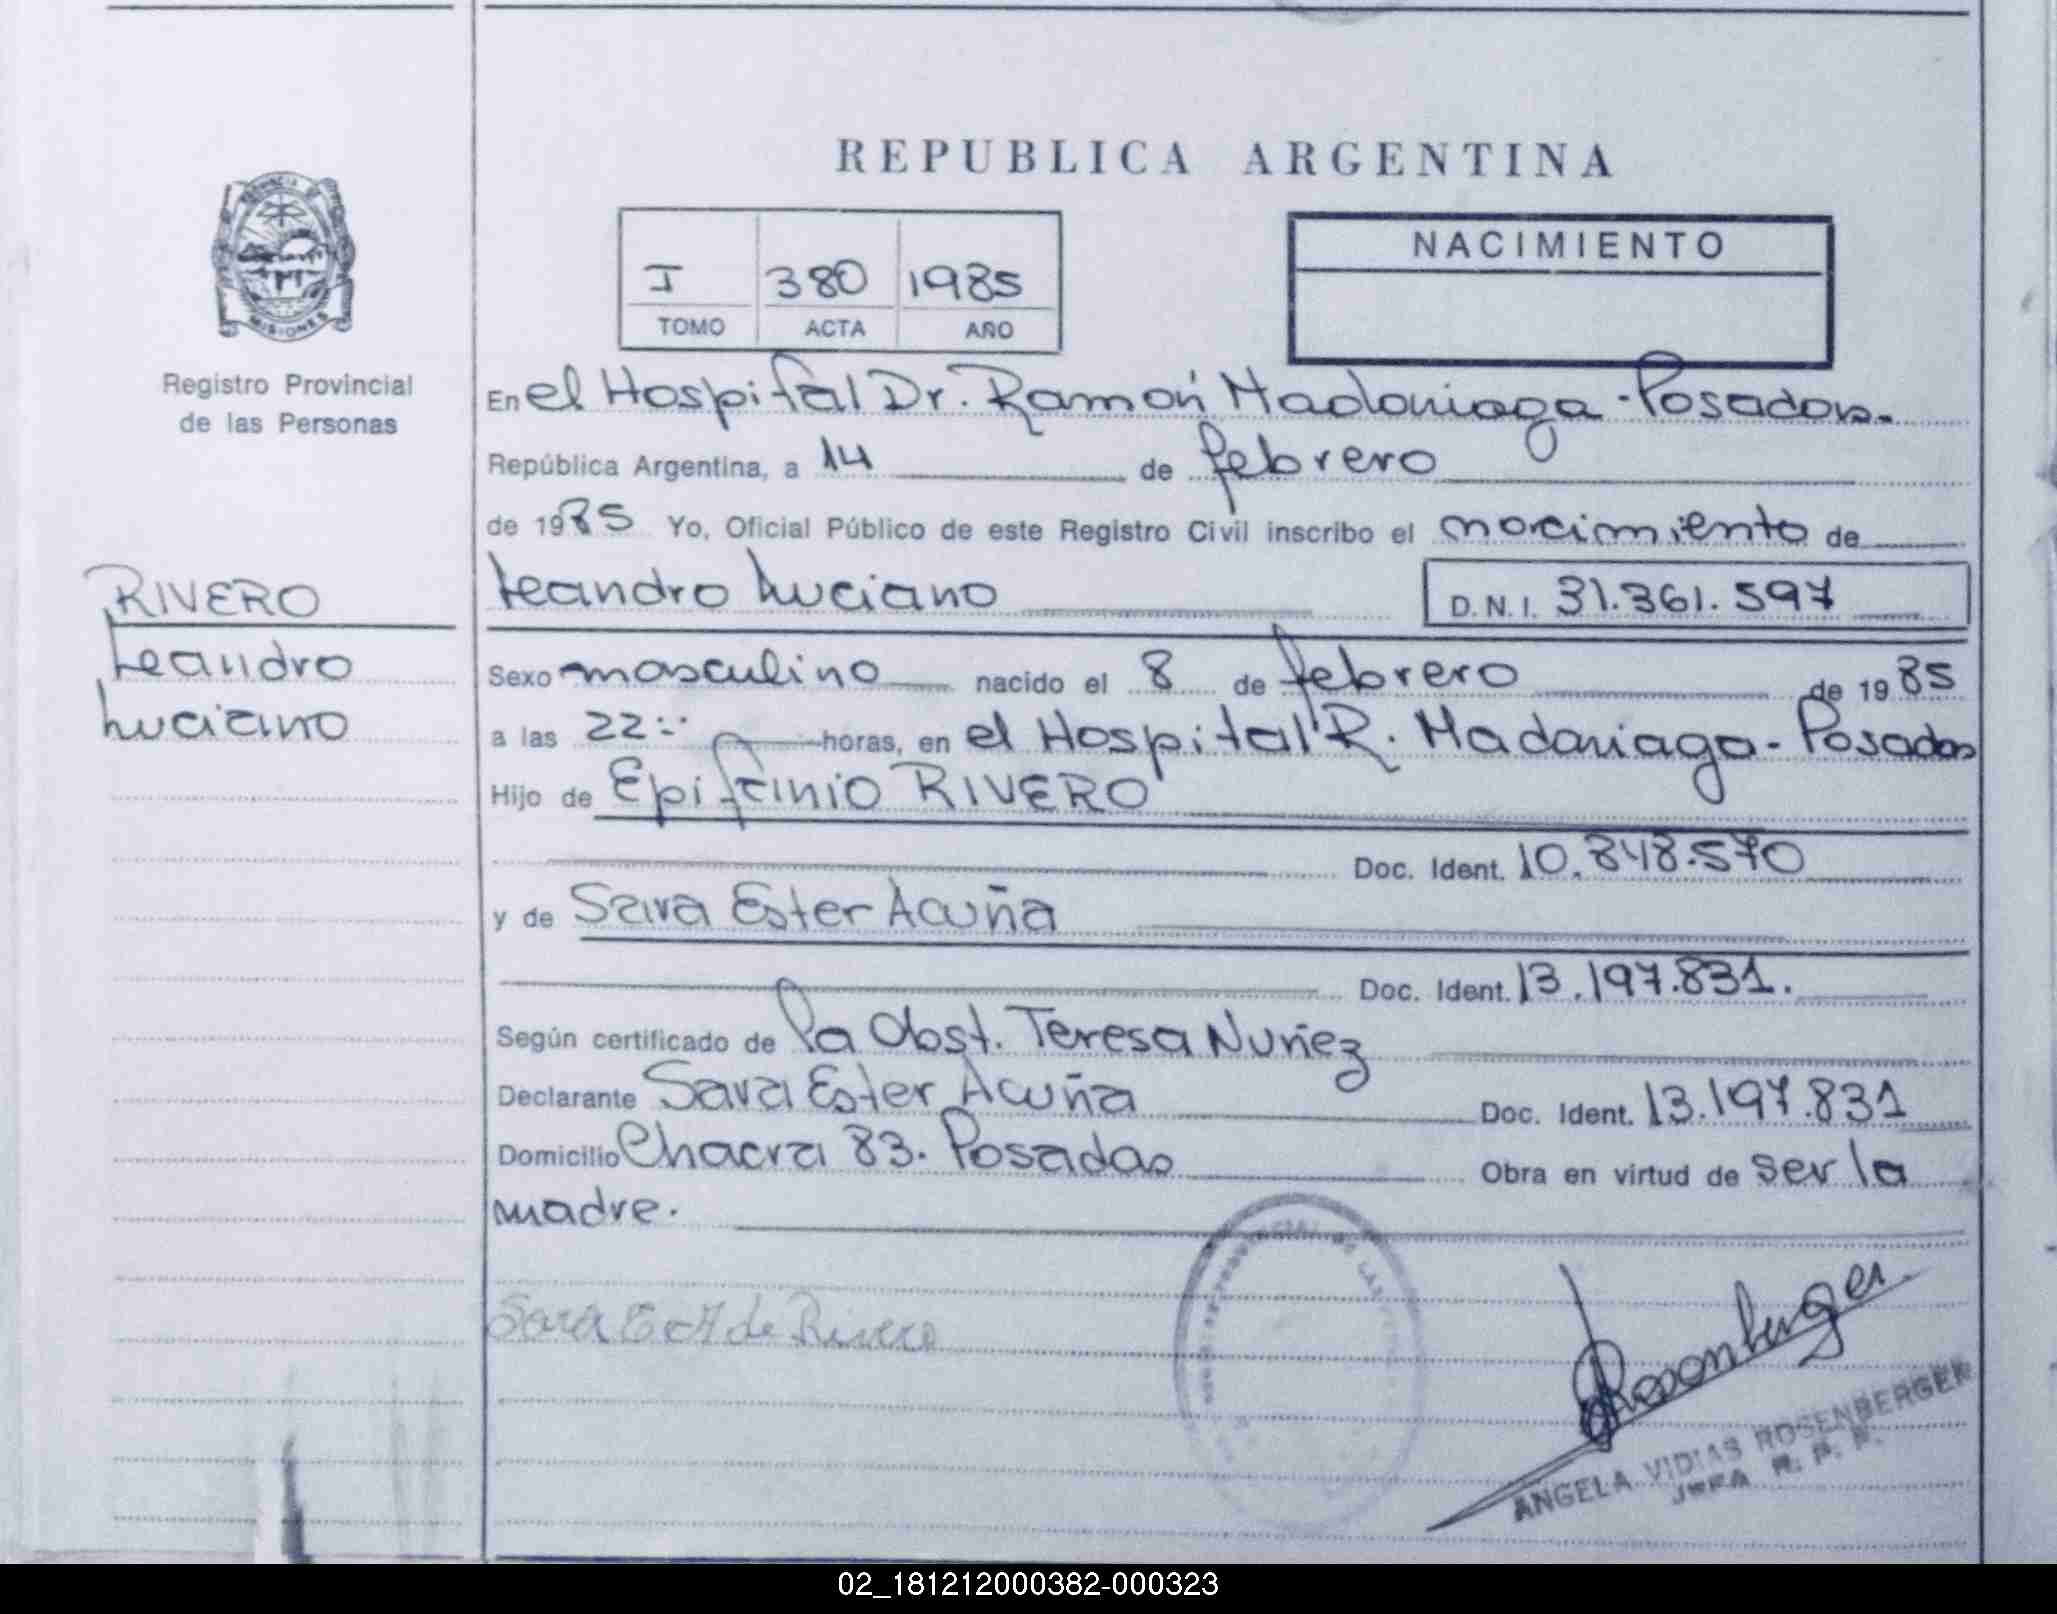 REPUBLICA ARGENTINA
PROVINCIA DE
MISIONES
Registro Provincial
de las Personas
I 380 1985
TOMO ACTA AÑO
NACIMIENTO
En el Hospital Dr. Ramón Madariaga - Posadas.
República Argentina, a 14 de febrero
de 1985 Yo, Oficial Público de este Registro Civil inscribo el nacimiento de
RIVERO
Leandro
Luciano
Leandro Luciano D.N.I. 31.361.597
Sexo masculino nacido el 8 de febrero de 1985
a las 22:: horas, en el Hospital R. Madariaga - Posadas
Hijo de Epifanio RIVERO
Doc. Ident. 10.848.570
y de Sara Ester Acuña
Doc. Ident. 13.197.831.
Según certificado de la Obst. Teresa Nuñez
Declarante Sara Ester Acuña Doc. Ident. 13.197.831
Domicilio Chacra 83. Posadas Obra en virtud de ser la
madre.
Sara E de Rivero
Rosenberger
ANGELA VIDIAS ROSENBERGER
JEFA R. P. P.
02_181212000382-000323